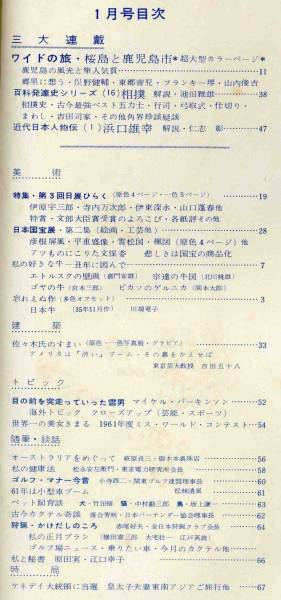 1月号目次
三大連載
ワイドの旅・桜島と鹿児島市*超大型カラーページ*
鹿児島の風光と隼人気質……11
郷里に想う・俣野健輔・東郷青児・フランキー堺・山内俊吉
百科発達史シリーズ(16)相撲 解説・池田雅雄……38
相撲史・古今最強ベスト五力士・行司・弓取式・仕切り・
まわし・吉田司家・その他角界珍談疑談
近代日本人物伝(1)浜口雄幸 解説・仁志 彰……47
美術
特集・第3回日展ひらく(原色4ページ・一色5ページ)……19
伊原宇三郎・寺内万次郎・伊東深水・山口蓬春他
特賞・文部大臣受賞のよろこび・各紙評その他
日本国宝展・第二集(絵画・工芸他)……28
彦根屏風・平重盛像・雪松図・楓図(原色4ページ)他
アツものにこりた文保委 悲しきは国宝の商品化
私の好きな牛―丑年に因んで……7
エトルスクの壁画(嘉門安雄) 宗達の牛図(北川桃雄)
ゴヤの牛(宮本三郎) ピカソのゲルニカ(岡本太郎)
忘れえぬ作(多色オフセット)……3
日本牛(35年11月作) 川端竜子
建築
佐々木氏のすまい(原色・一色写真版・グラビア)……33
アメリカは「渋い」ブーム・その裏をかえせば
東京芸大教授 吉田五十八
トピック
目の前を突走っていった雷男 マイケル・パーキンソン……52
海外トピック クローズアップ(芸能・スポーツ)
世界一の美女きまる 1961年度ミス・ワールド・コンテスト…54
随筆・談話
オーストラリアをめぐって 萩原貞三・御木本真珠店……56
私の健康法 松永安左衛門・東京電力研究所会長……58
ゴルフ・マナー今昔 小寺酉二・関東ゴルフ連盟理事長……60
61年は小型車ブーム 松林清風……61
ペット飼育談 犬・竹田恒 猫・中村勘三郎 鳥・坂上謙一……63
古今カクテル奇談 落合芳明・日本バーテンダー協会理事長…62
狩猟・かけだしのころ 赤尾好夫・全日本狩猟クラブ会長……64
私の正月プラン (横田喜三郎 大宅壮一 江戸英雄)
ゴルフ場ニュース・乗りたい車・今月のカクテル他……
私と秘書 原田実・江口幸子……66
時局
ケネディ大統領に当選 皇太子夫妻東南アジアご旅行他……67